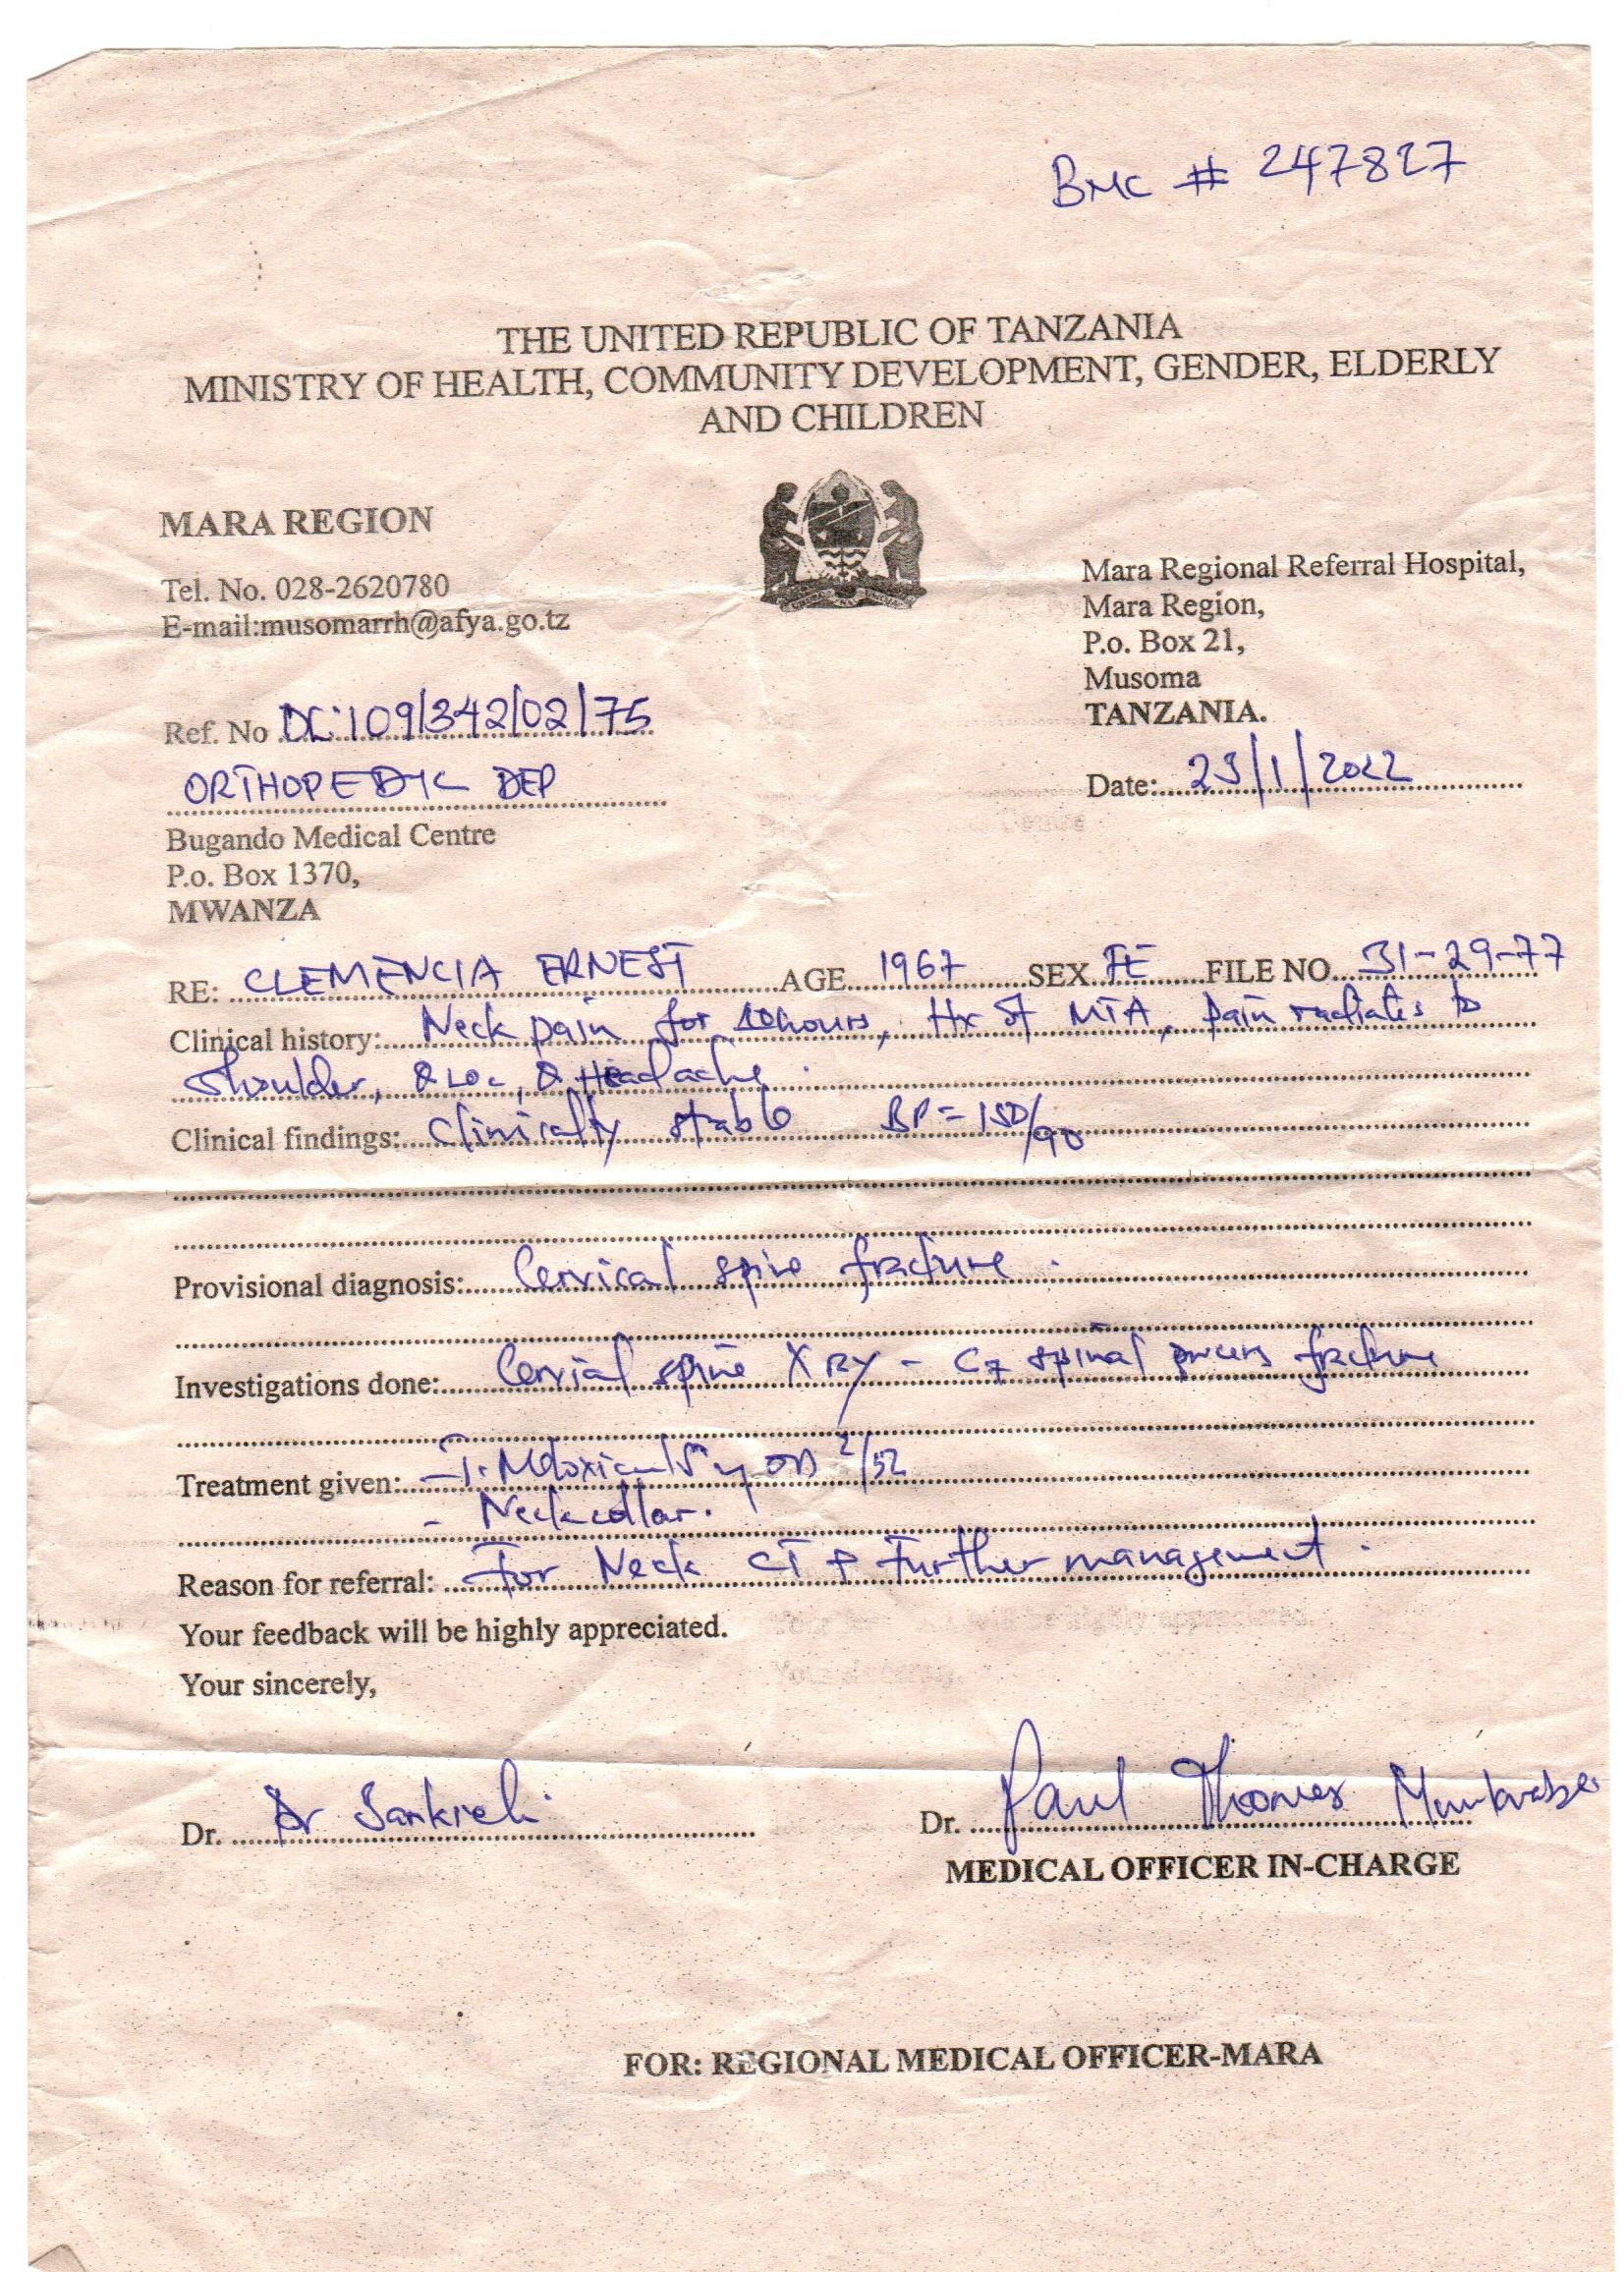 BMC # 247827
THE UNITED REPUBLIC OF TANZANIA
MINISTRY OF HEALTH, COMMUNITY DEVELOPMENT, GENDER, ELDERLY
AND CHILDREN
MARA REGION
Tel. No. 028-2620780
E-mail:musomarrh@afya.go.tz
Mara Regional Referral Hospital,
Mara Region,
P.o. Box 21,
Musoma
TANZANIA.
Ref. No DC:109/342/02/75
Date: 23/1/2022
ORTHOPEDIC DEP
Bugando Medical Centre
P.o. Box 1370,
MWANZA
RE: CLEMENCIA ERNEST AGE 1967 SEX FE FILE NO. 31-29-77
Clinical history: Neck pain for 10hours, Hx of MTA, pain radiates to
shoulder, LOC, Headache.
Clinical findings: Clinically stable BP = 150/90
Provisional diagnosis: Cervical spine fracture.
Investigations done: Cervial spine XRY - C7 spinal fracture
Treatment given: - T. OD 2/52
- Neck collar.
Reason for referral: For Neck CT + Further management.
Your feedback will be highly appreciated.
Your sincerely,
Dr. Dr
Dr. Paul Thomas
MEDICAL OFFICER IN-CHARGE
FOR: REGIONAL MEDICAL OFFICER-MARA